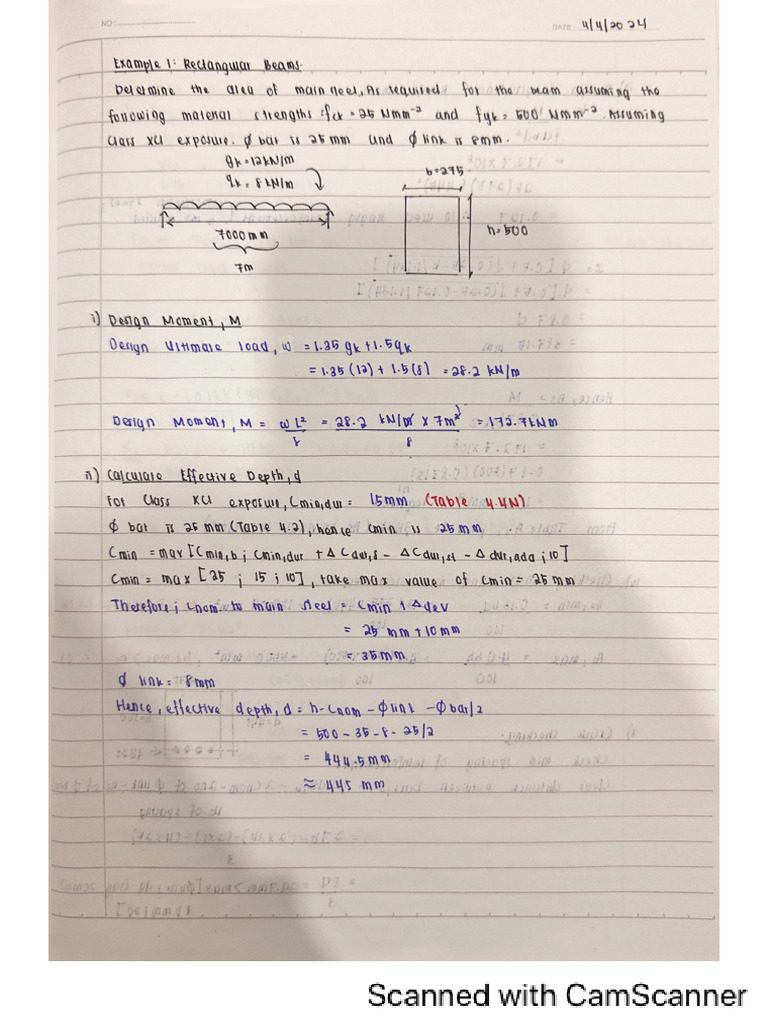 NO:
DATE: 4/4/2024
Example 1: Rectangular Beams.
Determine the area of main steel, As required for the beam assuming the
following material strengths: fck = 25 Nmm⁻² and fyk = 500 Nmm⁻². Assuming
Class XC1 exposure. ϕ bar is 25 mm and ϕ link is 8mm.
gk = 12kN/m
qk = 8 kN/m
b=275
h=500
7000 mm
7m
i) Design Moment, M
Design Ultimate load, w = 1.35 gk + 1.5qk
= 1.35 (12) + 1.5 (8) = 28.2 kN/m
Design Moment, M = wL²/8 = 28.2 kN/m x 7m²/8 = 172.7kNm
ii) Calculate Effective Depth, d
For Class XC1 exposure, Cmin,dur = 15mm (Table 4.4N)
ϕ bar is 25 mm (Table 4.2), hence Cmin is 25 mm
Cmin = max [Cmin,b ; Cmin,dur + ΔCdur,s - ΔCdur,st - Δdur,add ; 10]
Cmin = max [25 ; 15 ; 10], take max value of Cmin = 25 mm
Therefore ; Cnom to main steel = Cmin + Δdev
= 25 mm + 10mm
= 35mm
ϕ link = 8mm
Hence, effective depth, d = h - Cnom - ϕlink - ϕbar/2
= 500 - 35 - 8 - 25/2
= 444.5mm
≈ 445 mm
Scanned with CamScanner